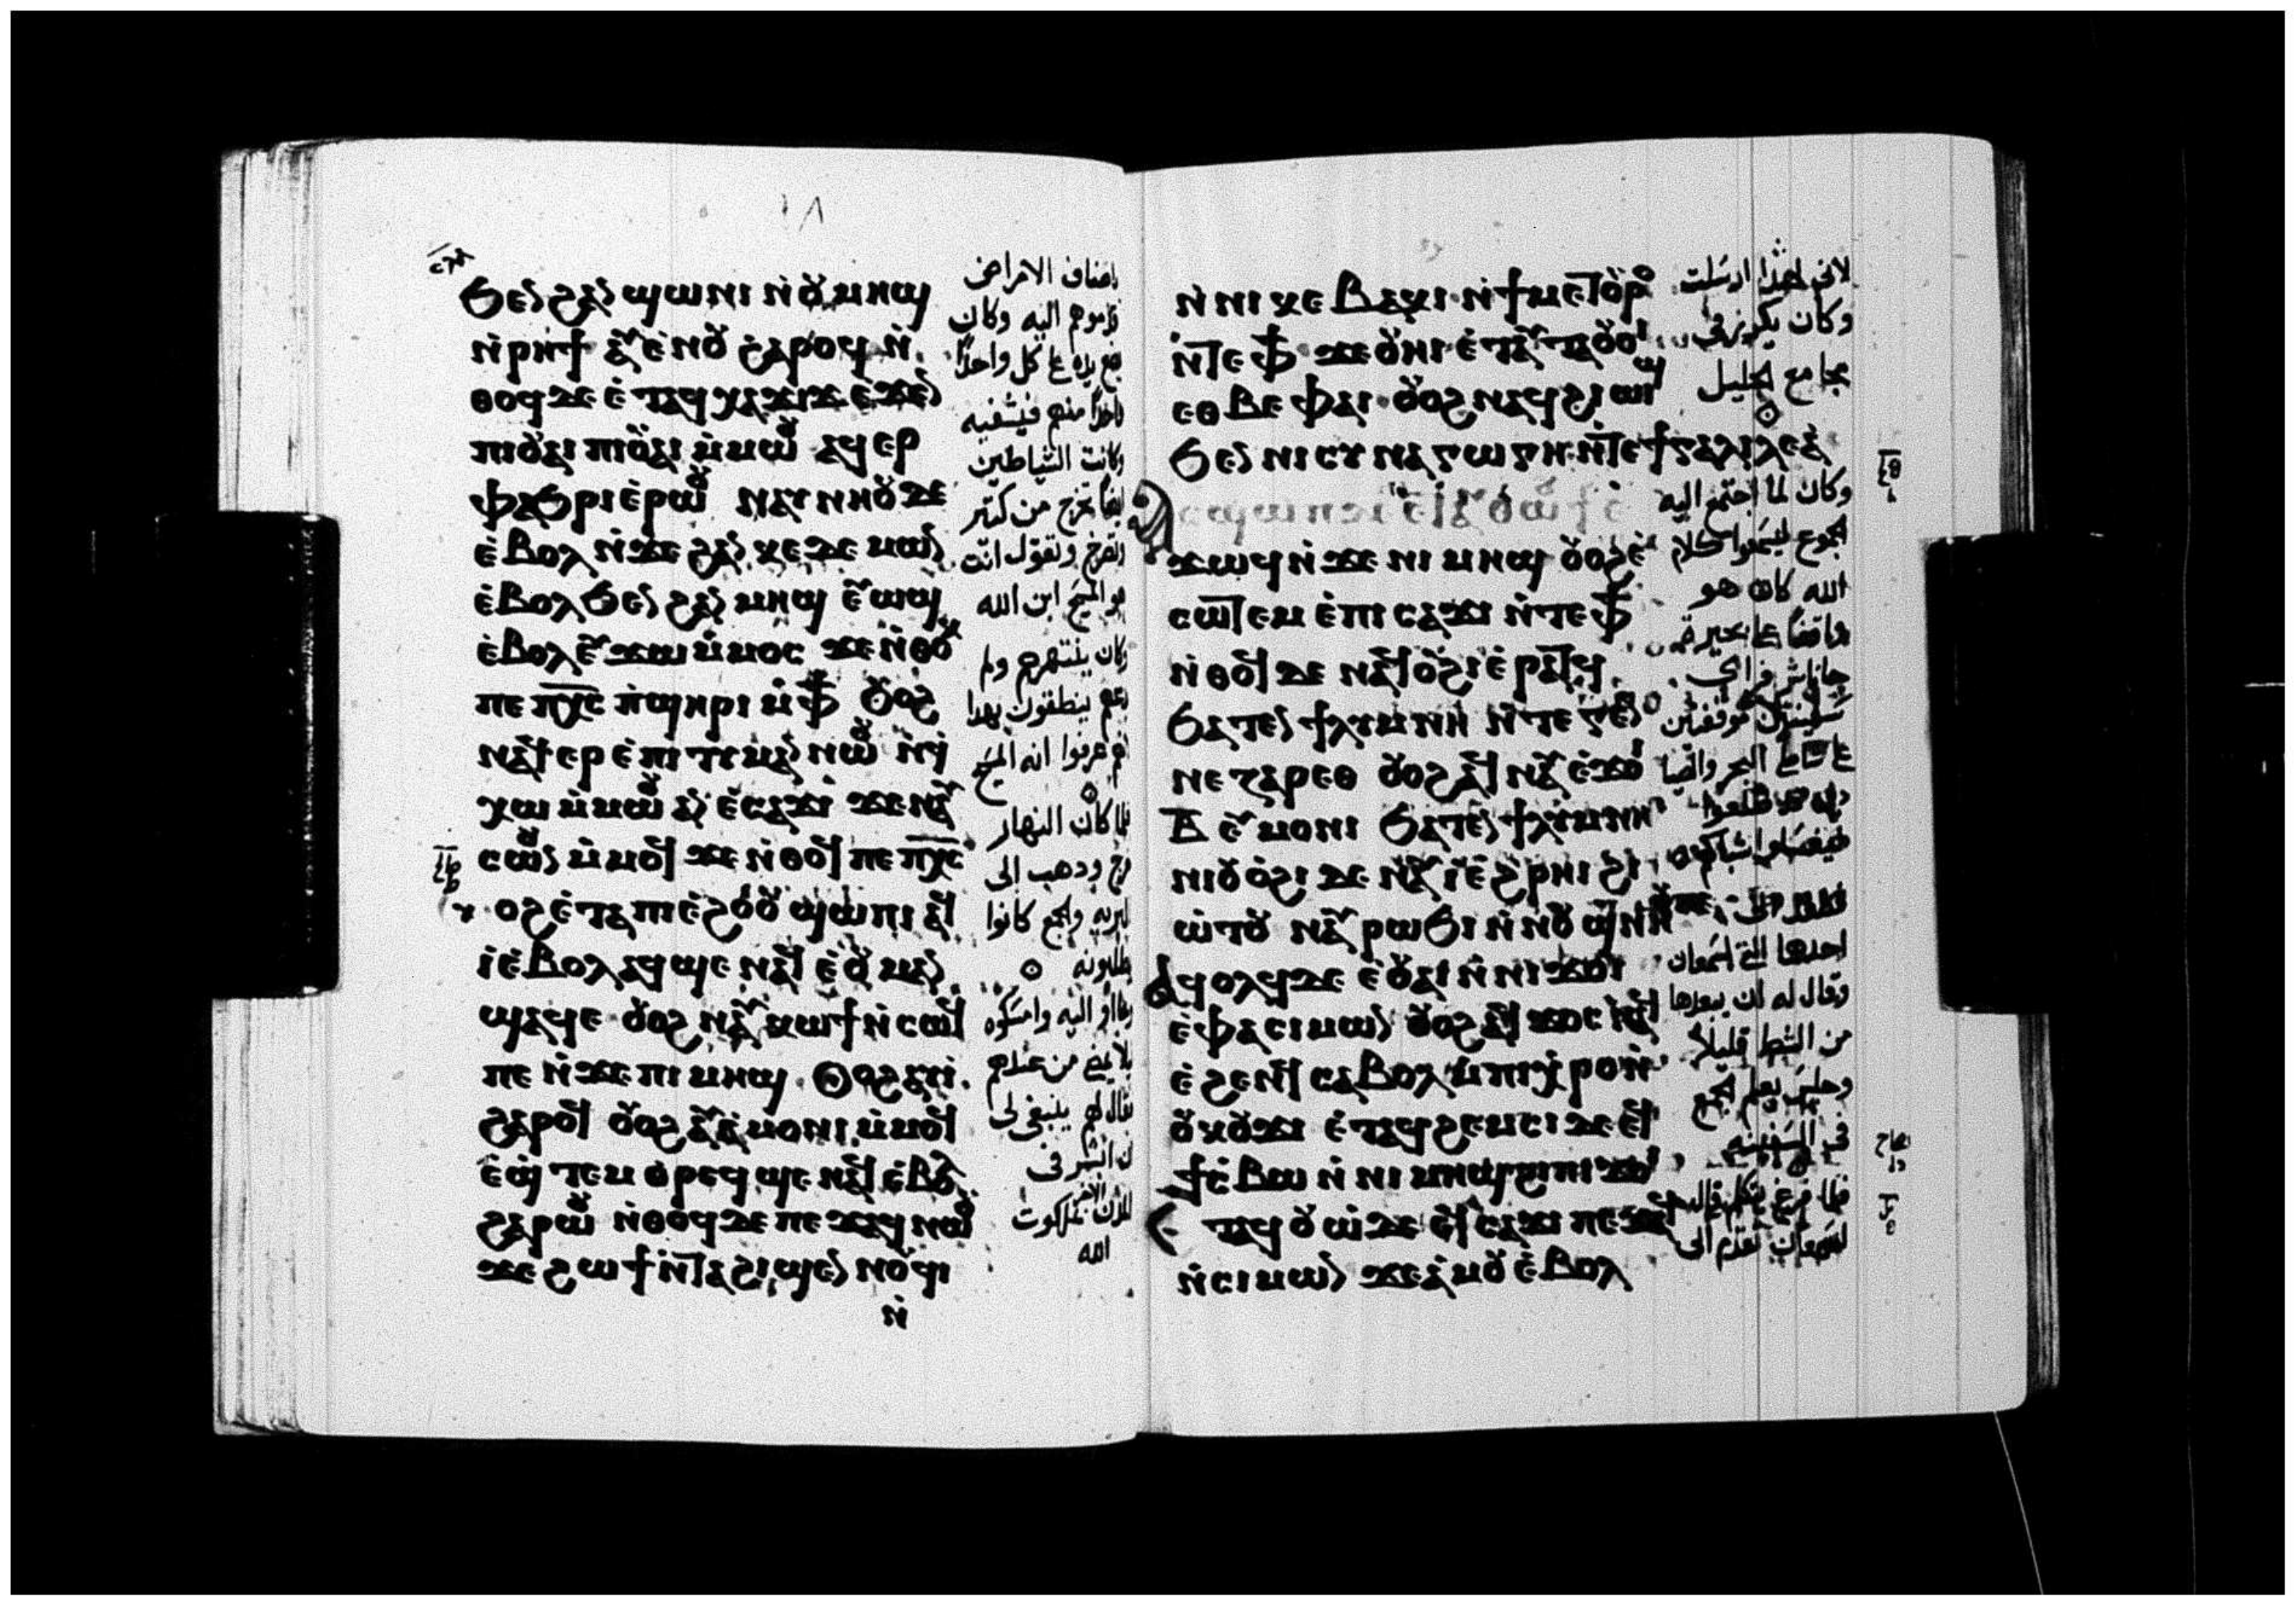 ϧⲉⲛ ϩⲁⲛ ϣⲱⲛⲓ ⲛ̀ⲟⲩⲙⲏϣ
ⲛ̀ⲣⲏϯ ⲁⲩⲉ̀ⲛⲟⲩ ϩⲁⲣⲟϥ ⲛ̀
ⲑⲟϥ ⲇⲉ ⲉ̀ⲧⲁϥⲭⲁϫⲓϫ ⲉ̀ϫⲉⲛ
ⲡⲓⲟⲩⲁⲓ ⲡⲓⲟⲩⲁⲓ ⲙ̀ⲙⲱⲟⲩ ⲁϥⲉⲣ
ⲫⲁϧⲣⲓ ⲉ̀ⲣⲱⲟⲩ ⲛⲁⲩⲛⲏⲟⲩ ⲇⲉ
ⲉ̀ⲃⲟⲗ ⲛ̀ϫⲉ ϩⲁⲛ ⲕⲉⲇⲉⲙⲱⲛ
ⲉ̀ⲃⲟⲗ ϧⲉⲛ ϩⲁⲛ ⲙⲏϣ ⲉⲩⲱϣ
ⲉ̀ⲃⲟⲗ ⲉⲩϫⲱ ⲙ̀ⲙⲟⲥ ϫⲉ ⲛ̀ⲑⲟⲕ
ⲡⲉ ⲡ̅ⲭ̅ⲥ̅ ⲡ̀ϣⲏⲣⲓ ⲙ̀ⲫϯ ⲟⲩⲟϩ
ⲛⲁϥⲉⲣⲉ̀ⲡⲓⲧⲩⲙⲁⲛ ⲛⲱⲟⲩ ⲛ̀ϥ
ⲭⲱ ⲙ̀ⲙⲱⲟⲩ ⲁⲛ ⲉ̀ⲥⲁϫⲓ ϫⲉ ⲛⲁⲩ
ⲥⲱⲟⲩⲛ ⲙ̀ⲙⲟϥ ϫⲉ ⲛ̀ⲑⲟϥ ⲡⲉ ⲡ̅ⲭ̅ⲥ̅
ⲟϩ ⲉ̀ⲧⲁ ⲡⲓⲉ̀ϩⲟⲟⲩ ϣⲱⲡⲓ ⲁϥ
ⲓ̀ ⲉ̀ⲃⲟⲗ ⲁϥϣⲉ ⲛⲁϥ ⲉ̀ⲟⲩⲙⲁⲛ
ϣⲁϥⲉ ⲟⲩⲟϩ ⲛⲁⲩⲕⲱϯ ⲛ̀ⲥⲱϥ
ⲡⲉ ⲛ̀ϫⲉ ⲡⲓⲙⲏϣ ⲟⲩⲟϩ ⲁⲩⲓ̀
ϩⲁⲣⲟϥ ⲟⲩⲟϩ ⲁⲩⲁ̀ⲙⲟⲛⲓ ⲙ̀ⲙⲟϥ
ⲉ̀ϣ̀ⲧⲉⲙ ⲑⲣⲉϥϣⲉ ⲛⲁϥ ⲉ̀ⲃⲟⲗ
ϩⲁⲣⲱⲟⲩ ⲛ̀ⲑⲟϥ ⲇⲉ ⲡⲉϫⲁϥ ⲛⲱⲟⲩ
ϫⲉ ϩⲱϯ ⲛ̀ⲧⲁϩⲓϣⲉⲛⲛⲟⲩϥⲓ
ⲛ̀
اصناف الامراض
قدموهم اليه وكان
يضع يده على كل واحد
واحدا منهم فيشفيه
وكانت الشياطين
ايضا تخرج من كثير
وتصرخ وتقول انت
هو المسيح ابن الله
وكان ينتهرهم ولم
يدعهم ينطقون بهذا
انهم عرفوا انه المسيح
فلما كان النهار
خرج وذهب الى
البريه والجمع كانوا
يطلبونه
وجااوا اليه وامسكوه
لا يمضي من عندهم
فقال لهم ينبغي لي
ان ابشر في
المدن الاخر بملكوت
الله
ⲛ̀ⲛⲓⲕⲉⲃⲁⲕⲓ ⲛ̀ϯⲙⲉⲧⲟⲩⲣⲟ
ⲛ̀ⲧⲉ ⲫϯ ϫⲉ ⲟⲩⲏⲓ ⲉ̀ⲧⲁⲩⲧⲁⲟⲩⲟⲓ
ⲉⲑⲃⲉ ⲫⲁⲓ ⲟⲩⲟϩ ⲛⲁϥϩⲓⲱⲓϣ
ϧⲉⲛ ⲛⲓⲥⲩⲛⲁⲅⲱⲅⲏ ⲛ̀ⲧⲉ ϯⲅⲁⲗⲓⲗⲉⲁ̀
ϫⲱϥ ⲛ̀ϫⲉ ⲛⲓⲙⲏϣ ⲟⲩⲟϩ ⲉ̀
ⲥⲱⲧⲉⲙ ⲉ̀ⲡⲓⲥⲁϫⲓ ⲛ̀ⲧⲉ ⲫϯ
ⲛ̀ⲑⲟϥ ⲇⲉ ⲛⲁϥⲟ̀ϩⲓ ⲉ̀ⲣⲁⲧϥ
ϧⲁⲧⲉⲛ ϯⲗⲩⲙⲛⲏ ⲛ̀ⲧⲉ ⲅⲉⲛ
ⲛⲉⲥⲁⲣⲉⲑ ⲟⲩⲟϩ ⲁϥⲛⲁⲩ ⲉ̀ϫⲟⲓ
ⲃ̅ ⲉⲩⲙⲟⲛⲓ ϧⲁⲧⲉⲛ ϯⲗⲩⲙⲛⲏ
ⲛⲓⲟⲩⲟ̀ϩⲓ ⲇⲉ ⲛⲉⲁⲩⲓ̀ ⲉ̀ϩ̀ⲣⲏⲓ ϩⲓ
ⲱ̀ⲧⲟⲩ ⲛⲁⲩⲣⲱϧⲓ ⲛ̀ⲛⲟⲩϣⲛⲏⲟⲩ
ⲁϥⲟⲗϥ ⲇⲉ ⲉ̀ⲟⲩⲁⲓ ⲛ̀ⲛⲓϫⲟⲓ
ⲉ̀ⲫⲁ ⲥⲓⲙⲱⲛ ⲟⲩⲟϩ ⲁϥϫⲟⲥ ⲛⲁϥ
ⲉ̀ϩⲉⲛϥ ⲥⲁⲃⲟⲗ ⲙ̀ⲡⲓⲭ̀ⲣⲟ ⲛ̀
ⲟⲩⲕⲟⲩϫⲓ ⲉ̀ⲧⲁϥϩⲉⲙⲥⲓ ⲇⲉ ⲉϥ
ϯⲥ̀ⲃⲱ ⲛ̀ⲛⲓⲙⲏϣ ϩⲓ ⲡⲓϫⲟⲓ
ⲉⲧⲁϥⲟⲩⲱ̀ ⲇⲉ ⲉϥⲥⲁϫⲓ ⲡⲉϫⲁϥ
ⲛ̀ⲥⲓⲙⲱⲛ ϫⲉ ⲁ̀ⲙⲟⲩ ⲉ̀ⲃⲟⲗ
لاني لهذا ارسلت
وكان يكرز في
مجامع الجليل
وكان لما اجتمع اليه
الجموع ليسمعوا كلام
الله كان هو
واقفا على بحيرة
سفينتين موقفتين
على شاطئ البحر
احدها التي لسمعان
وقال له ان يبعدها
من الشط قليلا
وجلس يعلم الجمع
في السفينه
فلما فرغ يتكلم قال
لسمعان تقدم الى